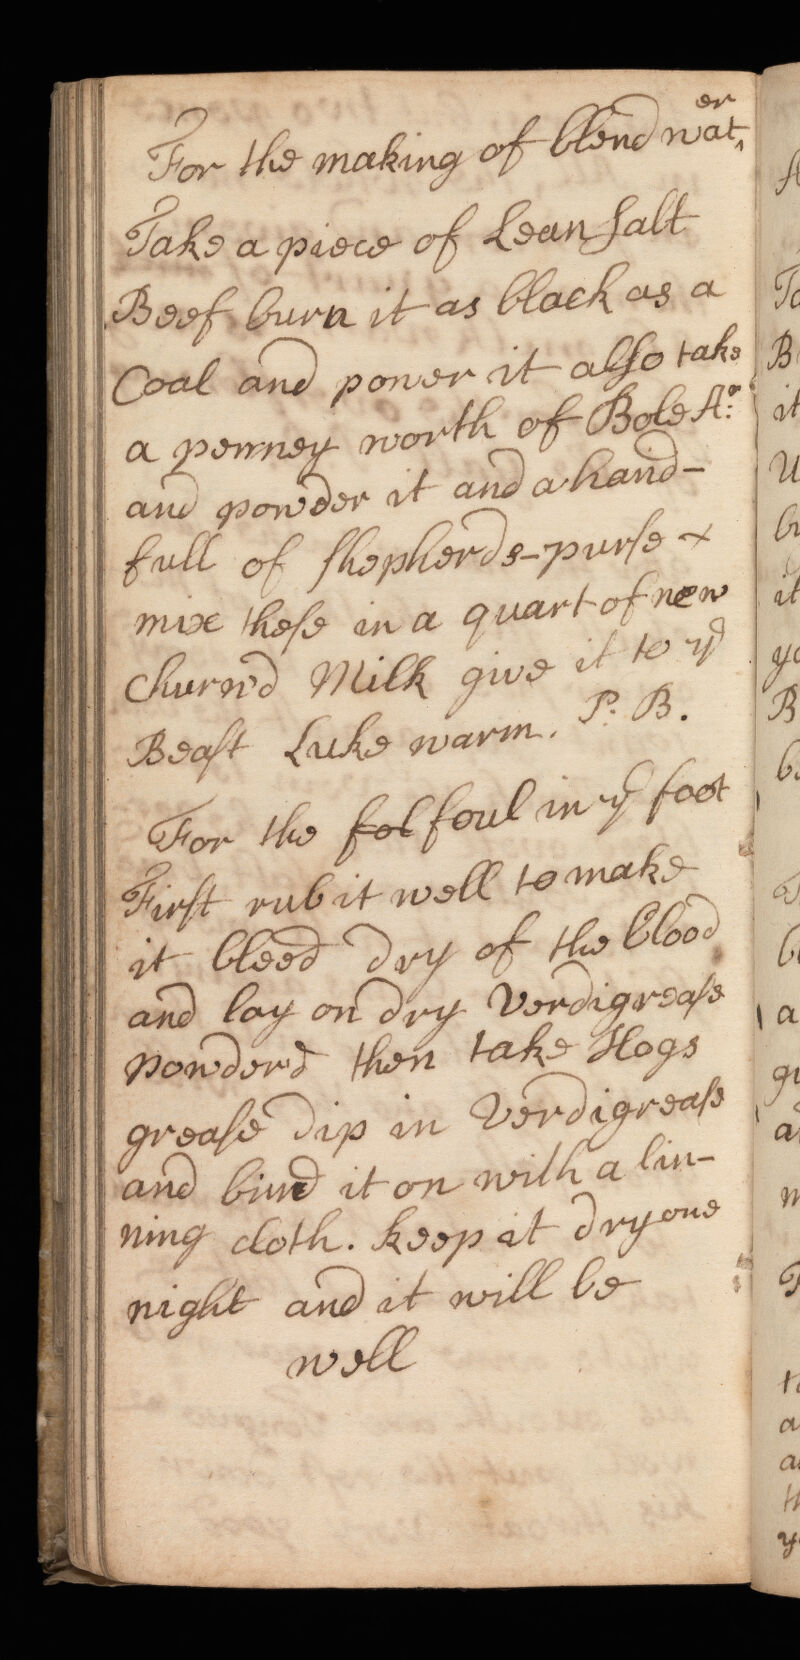 For the making of blend wat^er
Take a piece of Lean Salt
Beef burn it as black as a
Coal and power it alſo take
a penney worth of Bole Ar:
and powder it and a hand-
full of ſhepherds-purſe +
mix theſe in a quart of new
Churnd Milk give it to yᵉ
Beaſt Luke warm. P: B.
For the fol foul in yᵉ foot
Firſt rub it well to make
it bleed dry of the blood
and lay on dry Verdigreaſe
Powderd then take Hogs
greaſe dip in Verdigreaſe
and bind it on with a lin-
ning cloth. keep it dry one
night and it will be
well